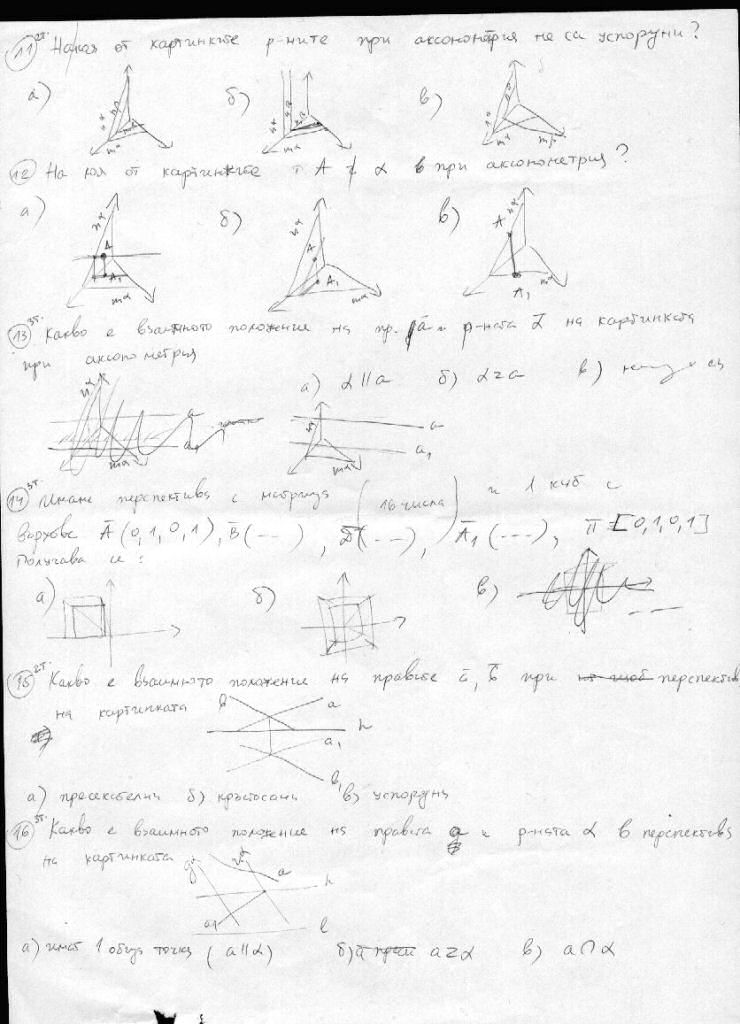 11 2т. На коя от картинките р-ните при аксонометрия не са успоруни?
а) б) в)
12 На коя от картинките т. А ∤ α в при аксонометрия?
а) б) в)
13 3т. Какво е взаимното положение на пр. a и р-ната α на картинката
при аксонометрия
а) α || a б) α ⊇ a в)
14 3т. Имаме перспектива с матрица (16 числа) и 1 куб с
върхове A̅ (0,1,0,1), B̅ (---), D̅ (---), A̅1 (---), П = [0,1,0,1]
Получава се:
а) б) в)
15 2т. Какво е взаимното положение на правите a̅, b̅ при перспектив
на картинката
а) пресекателни б) кръстосани в) успоруни
16 3т. Какво е взаимното положение на правата g и р-ната α в перспектива
на картинката
а) имат 1 обща точка (a || α) б) a ⊇ α в) a ∩ α